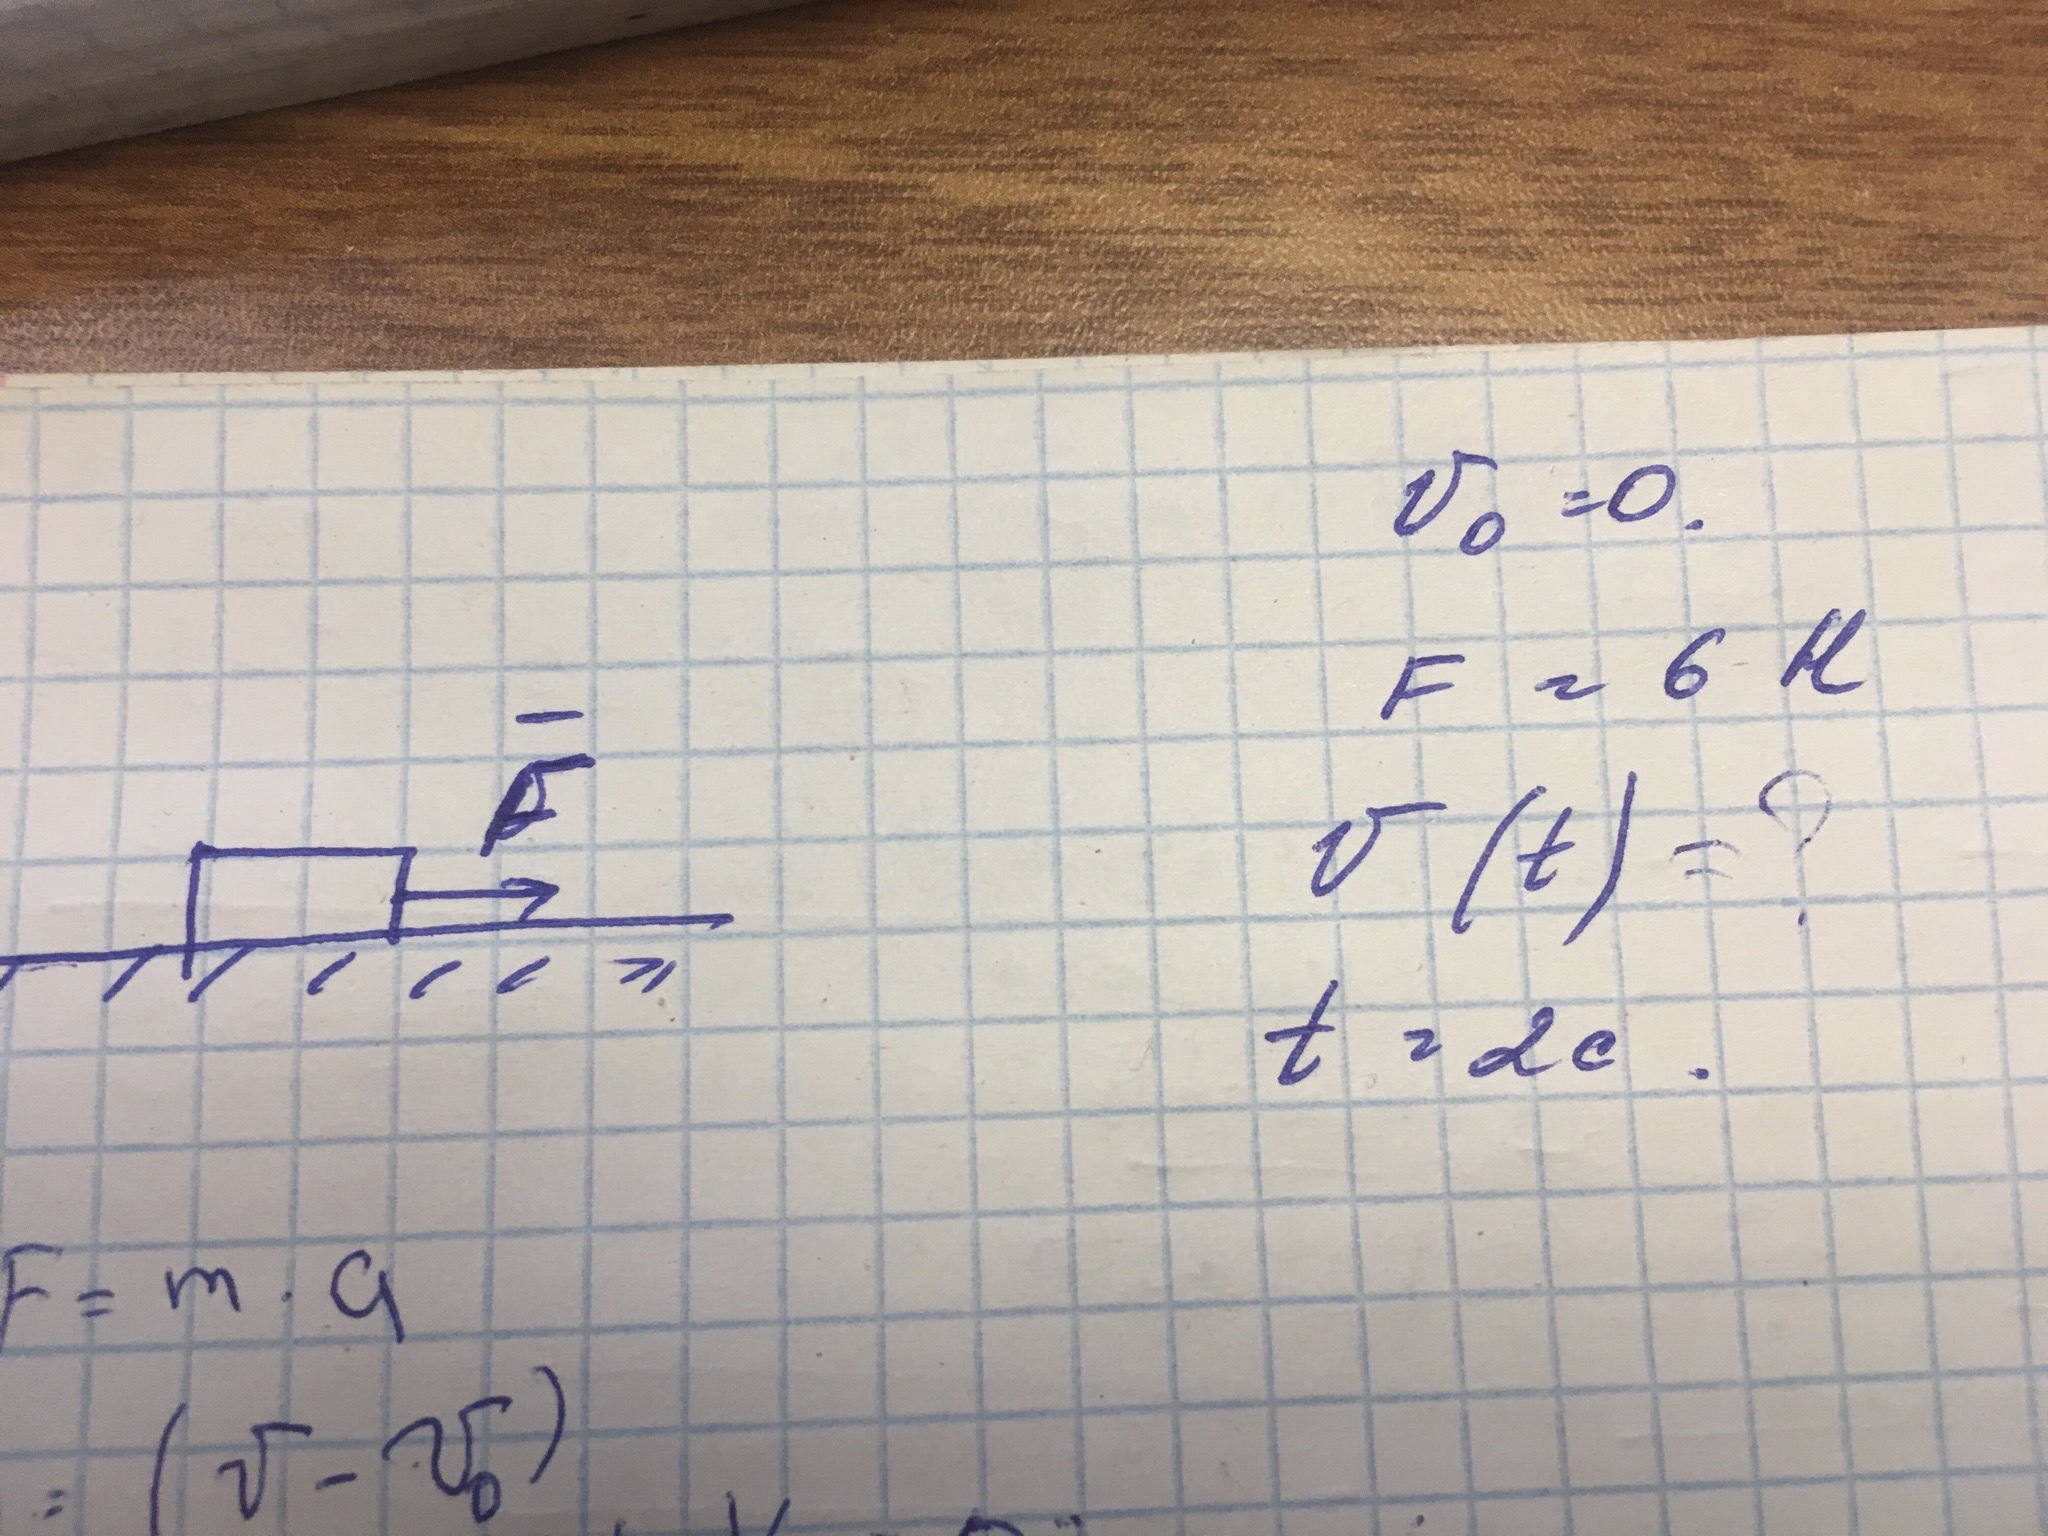 v₀ = 0.
F = 6 Н
F̄
v(t) = ?
t = 2с.
F = m · a
= (v - v₀)